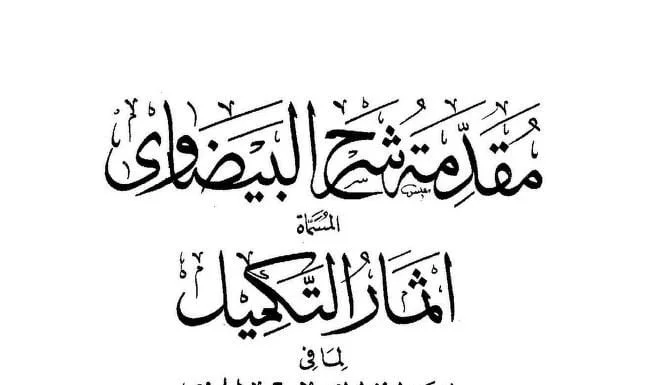 مُقَدِّمَةُ شَرْحِ البَيْضَاوِى
المُسَمَّاة
اثمَارُ التَّكْمِيل
لِمَا فِى